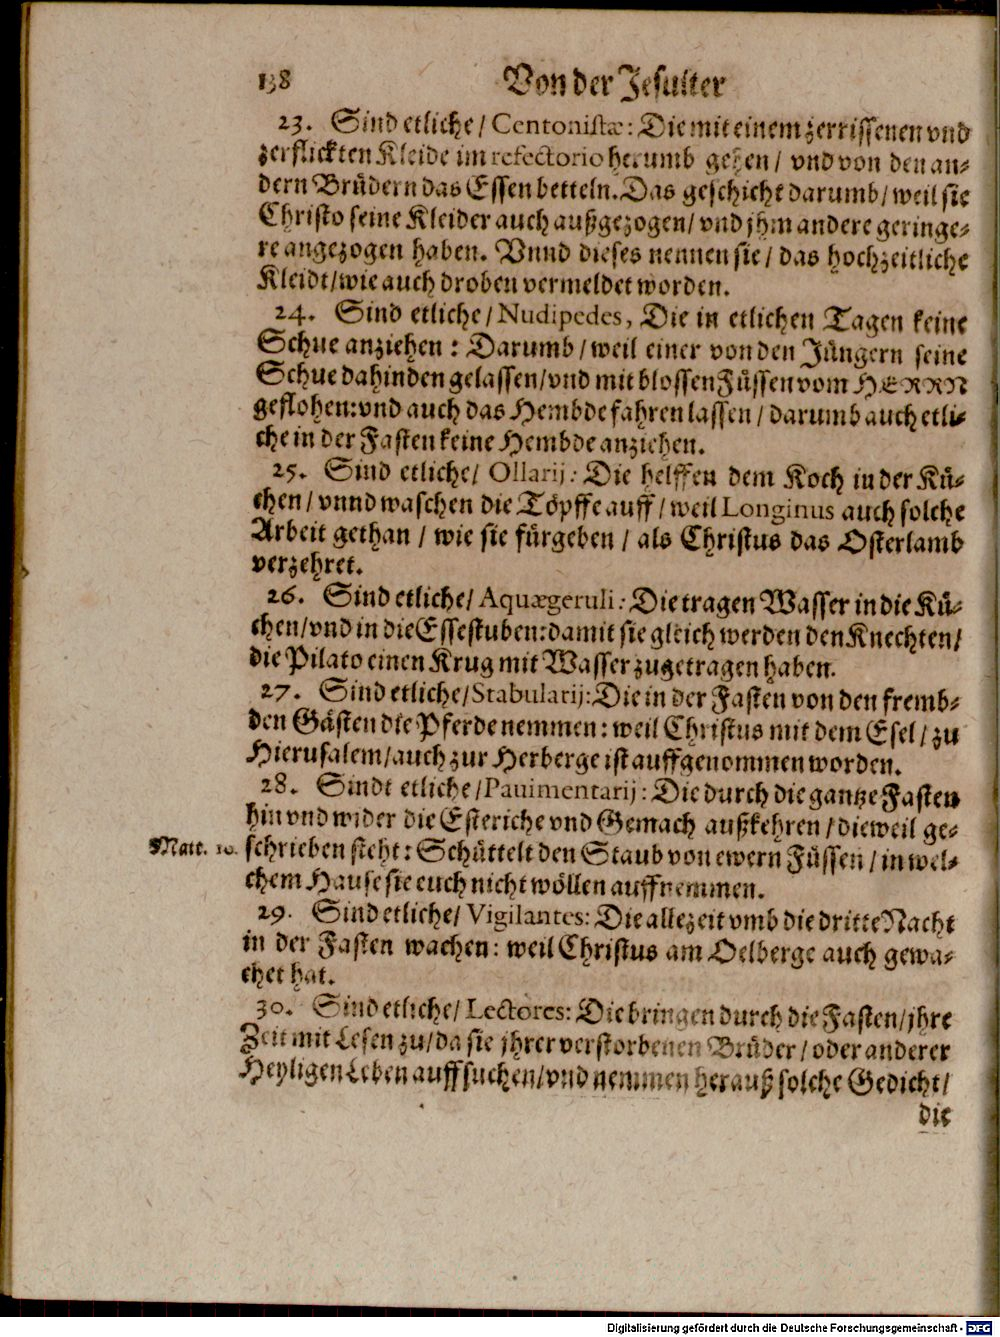 138 Von der Jesuiter
23. Sind etliche / Centonistæ: Die mit einem zerrissenen vnd
zerflickten Kleide im refectorio herumb gehen / vnd von den an-
dern Brüdern das Essen betteln. Das geschicht darumb / weil sie
Christo seine Kleider auch außgezogen / vnd jhm andere geringe-
re angezogen haben. Vnnd dieses nennen sie / das hochzeitliche
Kleidt / wie auch droben vermeldet worden.
24. Sind etliche / Nudipedes, Die in etlichen Tagen keine
Schue anziehen : Darumb / weil einer von den Jüngern seine
Schue dahinden gelassen / vnd mit blossen Füssen vom HERRN
geflohen: vnd auch das Hembde fahren lassen / darumb auch etli-
che in der Fasten keine Hembde anziehen.
25. Sind etliche / Ollarij: Die helffen dem Koch in der Kü-
chen / vnnd waschen die Töpffe auff / weil Longinus auch solche
Arbeit gethan / wie sie fürgeben / als Christus das Osterlamb
verzehret.
26. Sind etliche / Aquægeruli: Die tragen Wasser in die Kü-
chen / vnd in die Essestuben: damit sie gleich werden den Knechten /
die Pilato einen Krug mit Wasser zugetragen haben.
27. Sind etliche / Stabularij: Die in der Fasten von den fremb-
den Gästen die Pferde nemmen: weil Christus mit dem Esel / zu
Hierusalem / auch zur Herberge ist auffgenommen worden.
28. Sindt etliche / Pauimentarij: Die durch die gantze Fasten
hin vnd wider die Esteriche vnd Gemach außkehren / dieweil ge-
Matt. 10. schrieben steht: Schüttelt den Staub von ewern Füssen / in wel-
chem Hause sie euch nicht wöllen auffnemmen.
29. Sind etliche / Vigilantes: Die allezeit vmb die dritte Nacht
in der Fasten wachen: weil Christus am Oelberge auch gewa-
chet hat.
30. Sind etliche / Lectores: Die bringen durch die Fasten / jhre
Zeit mit Lesen zu / da sie jhrer verstorbenen Brüder / oder anderer
Heyligen Leben auffsuchen / vnd nemmen herauß solche Gedicht /
die
Digitalisierung gefördert durch die Deutsche Forschungsgemeinschaft - DFG